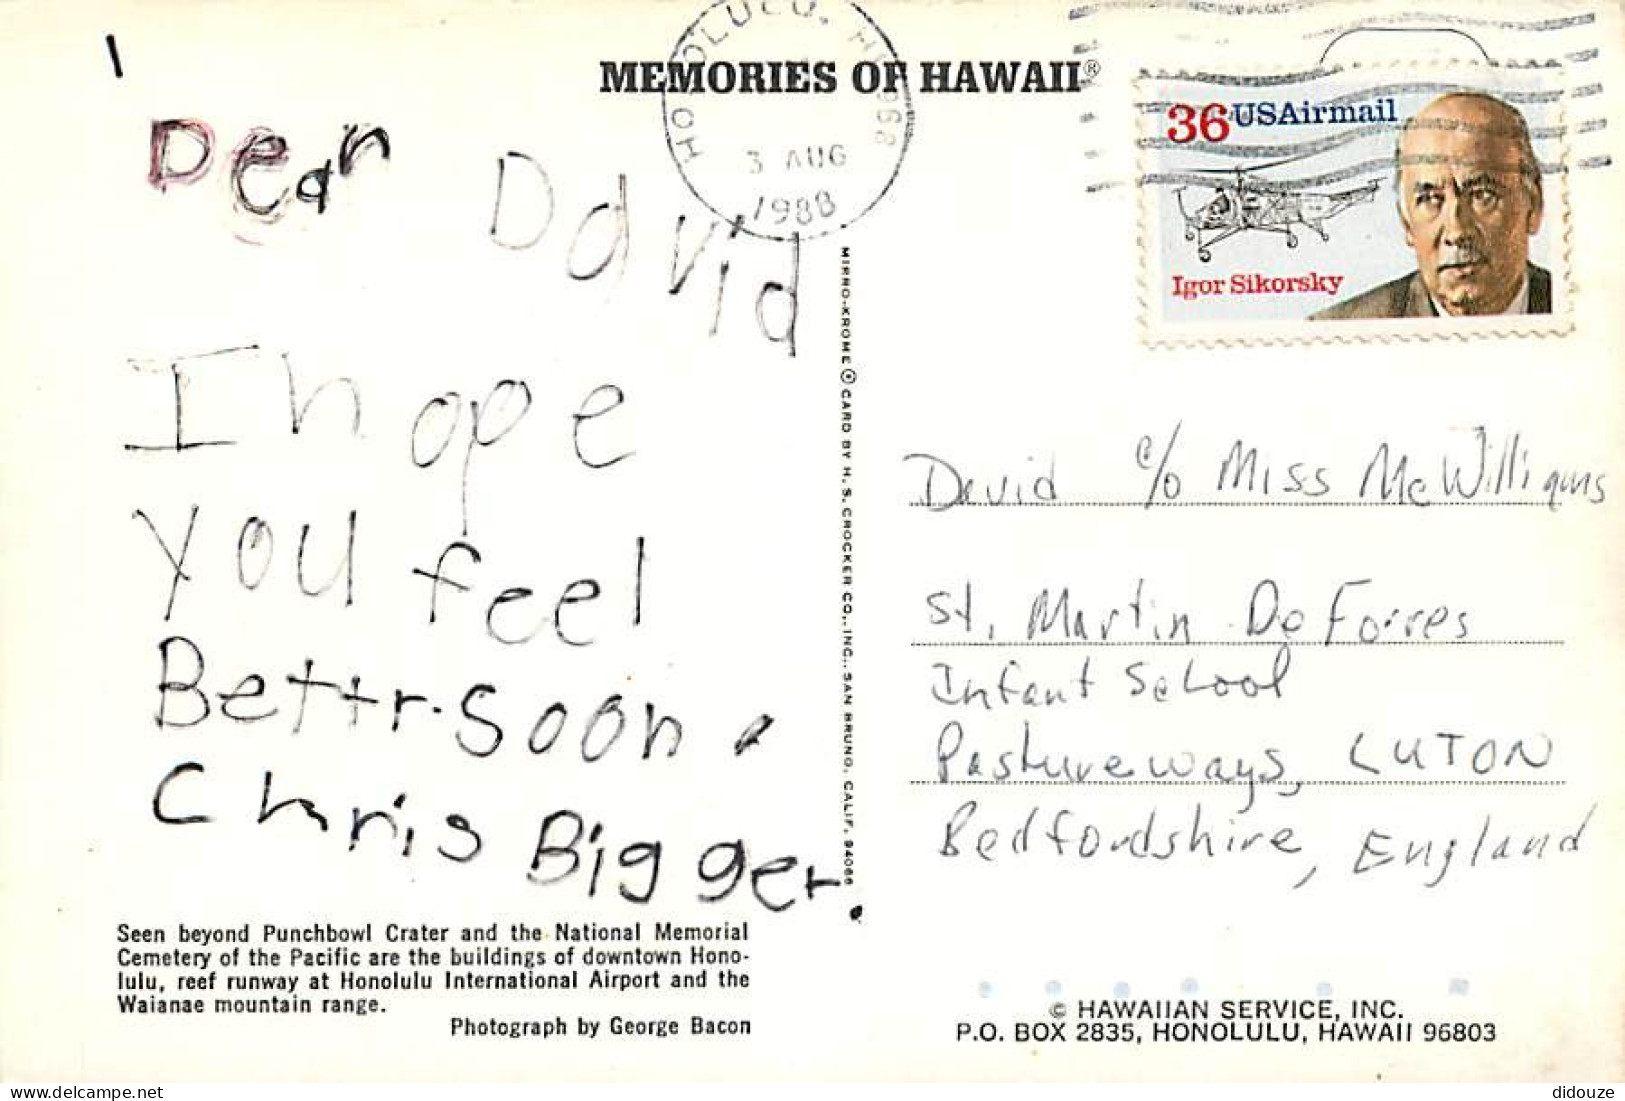 MEMORIES OF HAWAII®
HONOLULU, HI 968
3 AUG
1988
36 USAirmail
Igor Sikorsky
Dear David
I hope
you feel
Bettr soon.
Chris Bigger.
MIRRO-KROME ® CARD BY H. S. CROCKER CO., INC., SAN BRUNO, CALIF. 94066
David c/o Miss McWilliams
St. Martin De Forres
Infant School
Pastureways, LUTON
Bedfordshire, England
Seen beyond Punchbowl Crater and the National Memorial
Cemetery of the Pacific are the buildings of downtown Hono-
lulu, reef runway at Honolulu International Airport and the
Waianae mountain range.
Photograph by George Bacon
© HAWAIIAN SERVICE, INC.
P.O. BOX 2835, HONOLULU, HAWAII 96803
delcampe.net
didouze